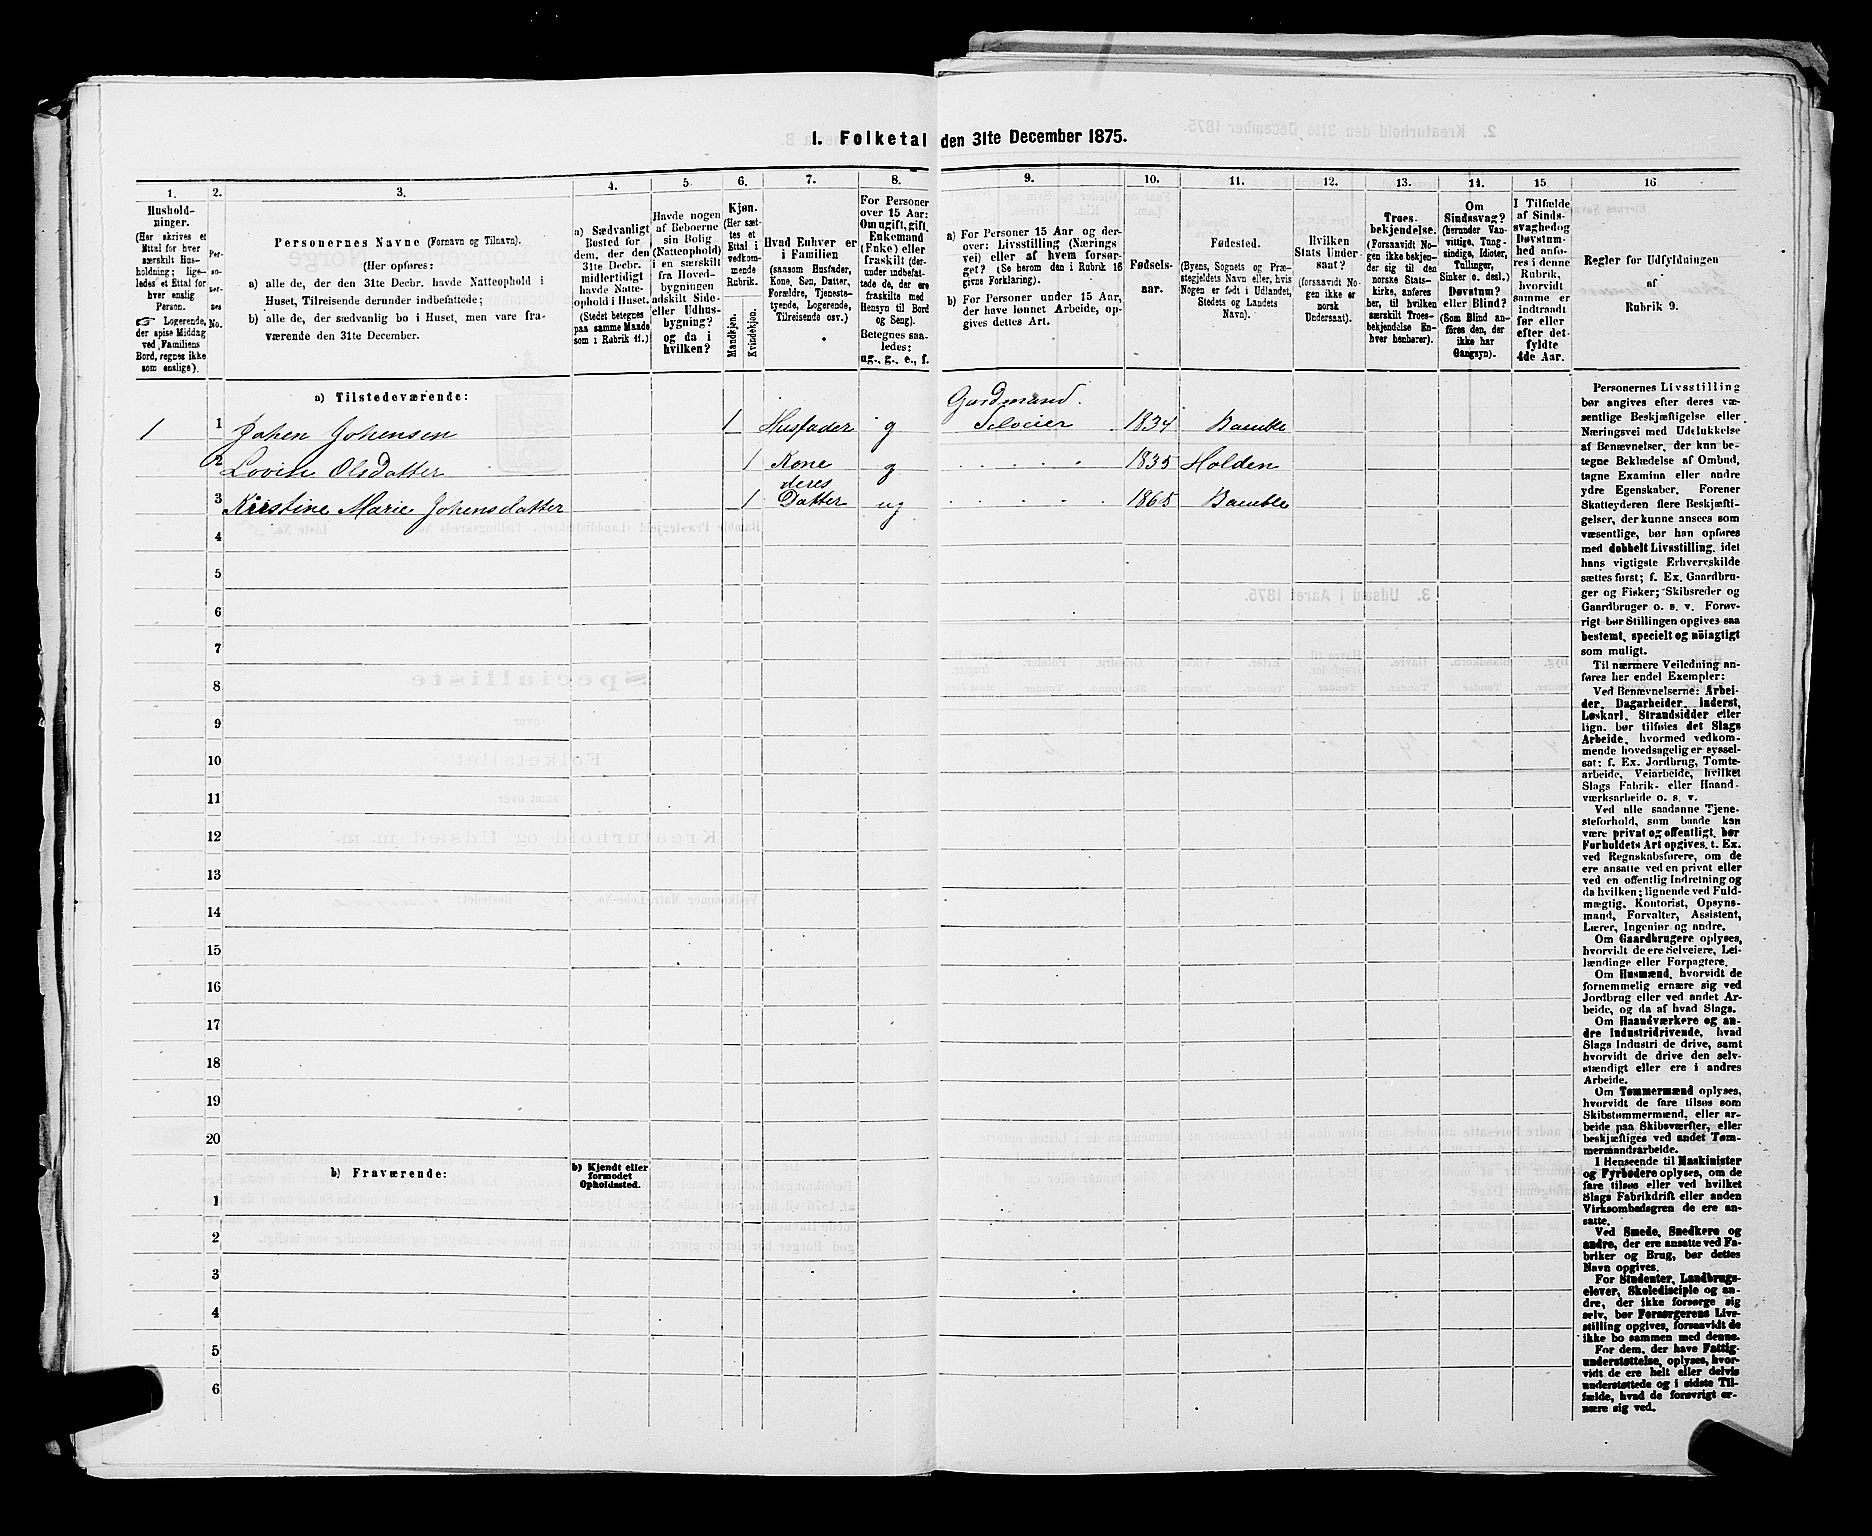 1. Folketal den 31te December 1875.
1. 2. 3. 4. 5. 6. 7. 8. 9. 10. 11. 12. 13. 14. 15 16
Hushold-
ninger.
(Her skrives et
Ettal for hver
særskilt Hus-
holdning; lige-
ledes et Ettal for
hver enslig
Person.
☞ Logerende,
der spise Middag
ved Familiens
Bord, regnes ikke
som enslige).
Per-
so-
ner-
nes
No.
Personernes Navne (Fornavn og Tilnavn).
(Her opføres:
a) alle de, der den 31te Decbr. havde Natteophold i
Huset, Tilreisende derunder indbefattede;
b) alle de, der sædvanlig bo i Huset, men vare fra-
værende den 31te December.
a) Sædvanligt
Bosted for
dem, der den
31te Decbr.
midlertidigt
havde Natte-
ophold i Huset.
(Stedet betegnes
paa samme Maade
som i Rubrik 11.)
Havde nogen
af Beboerne
sin Bolig
(Natteophold)
i en særskilt
fra Hoved-
bygningen
adskilt Side-
eller Udhus-
bygning?
og da i
hvilken?
Kjøn.
(Her sæt-
tes et
Ettal i
vedkom-
mende
Rubrik.
Mandkjøn.
Kvindekjøn.
Hvad Enhver er
i Familien
(saasom Husfader,
Kone, Søn, Datter,
Forældre, Tjeneste-
tyende, Logerende,
Tilreisende osv.)
For Personer
over 15 Aar:
Om ugift, gift,
Enkemand
(Enke) eller
fraskilt (der-
under indbefat-
tede de, der ere
fraskilte med
Hensyn til Bord
og Seng).
Betegnes saa-
ledes:
ug., g., e., f.
a) For Personer 15 Aar og der-
over: Livsstilling (Nærings
vei) eller af hvem forsør-
get? (Se herom den i Rubrik 16
givne Forklaring).
b) For Personer under 15 Aar,
der have lønnet Arbeide, op-
gives dettes Art.
Fødsels-
aar.
Fødested.
(Byens, Sognets og Præ-
stegjeldets Navn eller, hvis
Nogen er født i Udlandet,
Stedets og Landets
Navn).
Hvilken
Stats Under-
saat?
(forsaavidt No-
gen ikke er
norsk
Undersaat).
Troes-
bekjendelse.
(Forsaavidt No-
gen ikke bekjen-
der sig til den
norske Stats-
kirke, anføres
her, til hvilken
særskilt Troes-
bekjendelse En-
hver henhører).
Om
Sindssvag?
(herunder Van-
vittige, Tung-
sindige, Idioter,
Tullinger,
Sinker o. desl.)
Døvstum?
eller Blind?
(Som Blind an-
føres den, der
ikke har
Gangsyn).
I Tilfælde
af Sinds-
svaghed og
Døvstum-
hed anfø-
res i denne
Rubrik,
hvorvidt
samme er
indtraadt
før eller
efter det
fyldte
4de Aar.
Regler for Udfyldningen
af
Rubrik 9.
a) Tilstedeværende:
Gardmand.
1 1 Johen Johensen 1 Husfader g Selveier 1834 Bamble
2 Lovise Olsdatter 1 Kone g 1835 Holden
deres
3 Kirstine Marie Johensdatter 1 Datter ug 1865 Bamble
4
5
6
7
8
9
10
11
12
13
14
15
16
17
18
19
20
b) Fraværende:
b) Kjendt eller
formodet
Opholdssted.
1
2
3
4
5
6
Personernes Livsstilling
bør angives efter deres væ-
sentlige Beskjæftigelse eller
Næringsvei med Udelukkelse
af Benævnelser, der kun be-
tegne Beklædelse af Ombud,
tagne Examina eller andre
ydre Egenskaber. Forener
Skatteyderen flere Beskjæfti-
gelser, der kunne ansees som
væsentlige, bør han opføres
med dobbelt Livsstilling, idet
hans vigtigste Erhvervskilde
sættes først; f. Ex. Gaardbru-
ger og Fisker; Skibsreder og
Gaardbruger o. s. v. Forøv-
rigt bør Stillingen opgives saa
bestemt, specielt og nøiagtigt
som muligt.
Til nærmere Veiledning an-
føres her endel Exempler:
Ved Benævnelserne: Arbei-
der, Dagarbeider, Inderst,
Løskarl, Strandsidder eller
lign. bør tilføies det Slags
Arbeide, hvormed vedkom-
mende hovedsagelig er syssel-
sat; f. Ex. Jordbrug, Tomte-
arbeide, Veiarbeide, hvilket
Slags Fabrik- eller Haand-
værksarbeide o. s. v.
Ved alle saadanne Tjene-
steforhold, som baade kan
være privat og offentligt, bør
Forholdets Art opgives, t. Ex.
ved Regnskabsførere, om de
ere ansatte ved en privat eller
ved en offentlig Indretning og
da hvilken; lignende ved Fuld-
mægtig, Kontorist, Opsyns-
mand, Forvalter, Assistent,
Lærer, Ingeniør og andre.
Om Gaardbrugere oplyses,
hvorvidt de ere Selveiere, Lei-
lændinge eller Forpagtere.
Om Husmænd, hvorvidt de
fornemmelig ernære sig ved
Jordbrug eller ved andet Ar-
beide, og da af hvad Slags.
Om Haandværkere og an-
dre Industridrivende, hvad
Slags Industri de drive, samt
hvorvidt de drive den selv-
stændigt eller ere i andres
Arbeide.
Om Tømmermænd oplyses,
hvorvidt de fare tilsøs som
Skibstømmermænd, eller ar-
beide paa Skibsværfter, eller
beskjæftiges ved andet Tøm-
mermandsarbeide.
I Henseende til Maskinister
og Fyrbødere oplyses, om de
fare tilsøs eller ved hvilket
Slags Fabrikdrift eller anden
Virksombedsgren de ere an-
satte.
Ved Smede, Snedkere og
andre, der ere ansatte ved Fa-
briker og Brug, bør dettes
Navn opgives.
For Studenter, Landbrugs-
elever, Skoledisciple og an-
dre, der ikke forsørge sig
selv, bør Forsørgerens Livs-
stilling opgives, forsaavidt de
ikke bo sammen med denne.
For dem, der have Fattig-
understøttelse, oplyses, hvor-
vidt de ere helt eller delvis
understøttede og i sidste Til-
fælde, hvad de forøvrigt er-
nære sig ved.